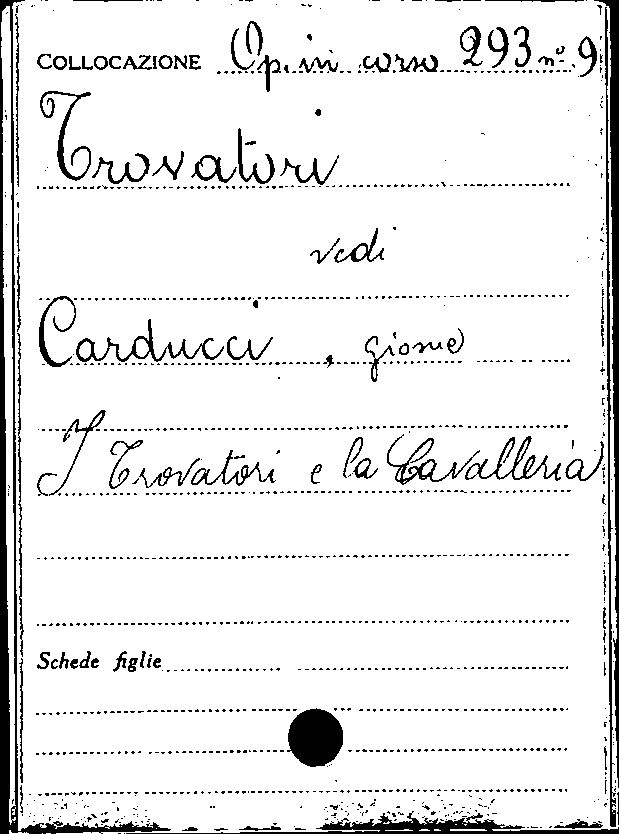 COLLOCAZIONE Op. in corso 293 nº 9
Trovatori
vedi
Carducci, giosue
I Trovatori e la Cavalleria
Schede figlie